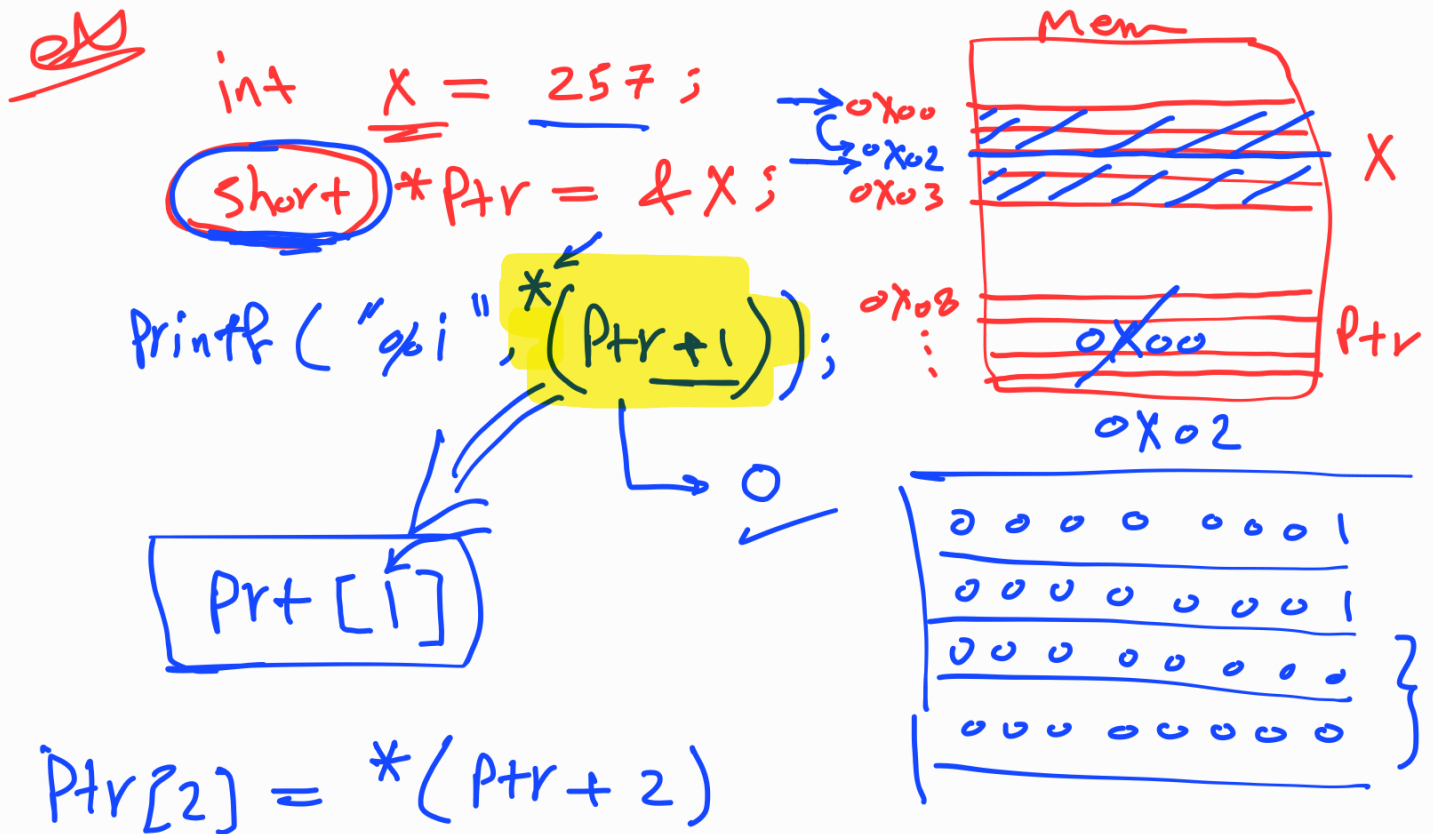 int x = 257;
short *Ptr = &x;
printf("%i", *(Ptr+1));
0
Prt[i]
Ptr[2] = *(Ptr + 2)
Mem
0x00
0x02
0x03
X
0x08
0x00
Ptr
0x02
0 0 0 0 0 0 0 1
0 0 0 0 0 0 0 1
0 0 0 0 0 0 0 0
0 0 0 0 0 0 0 0